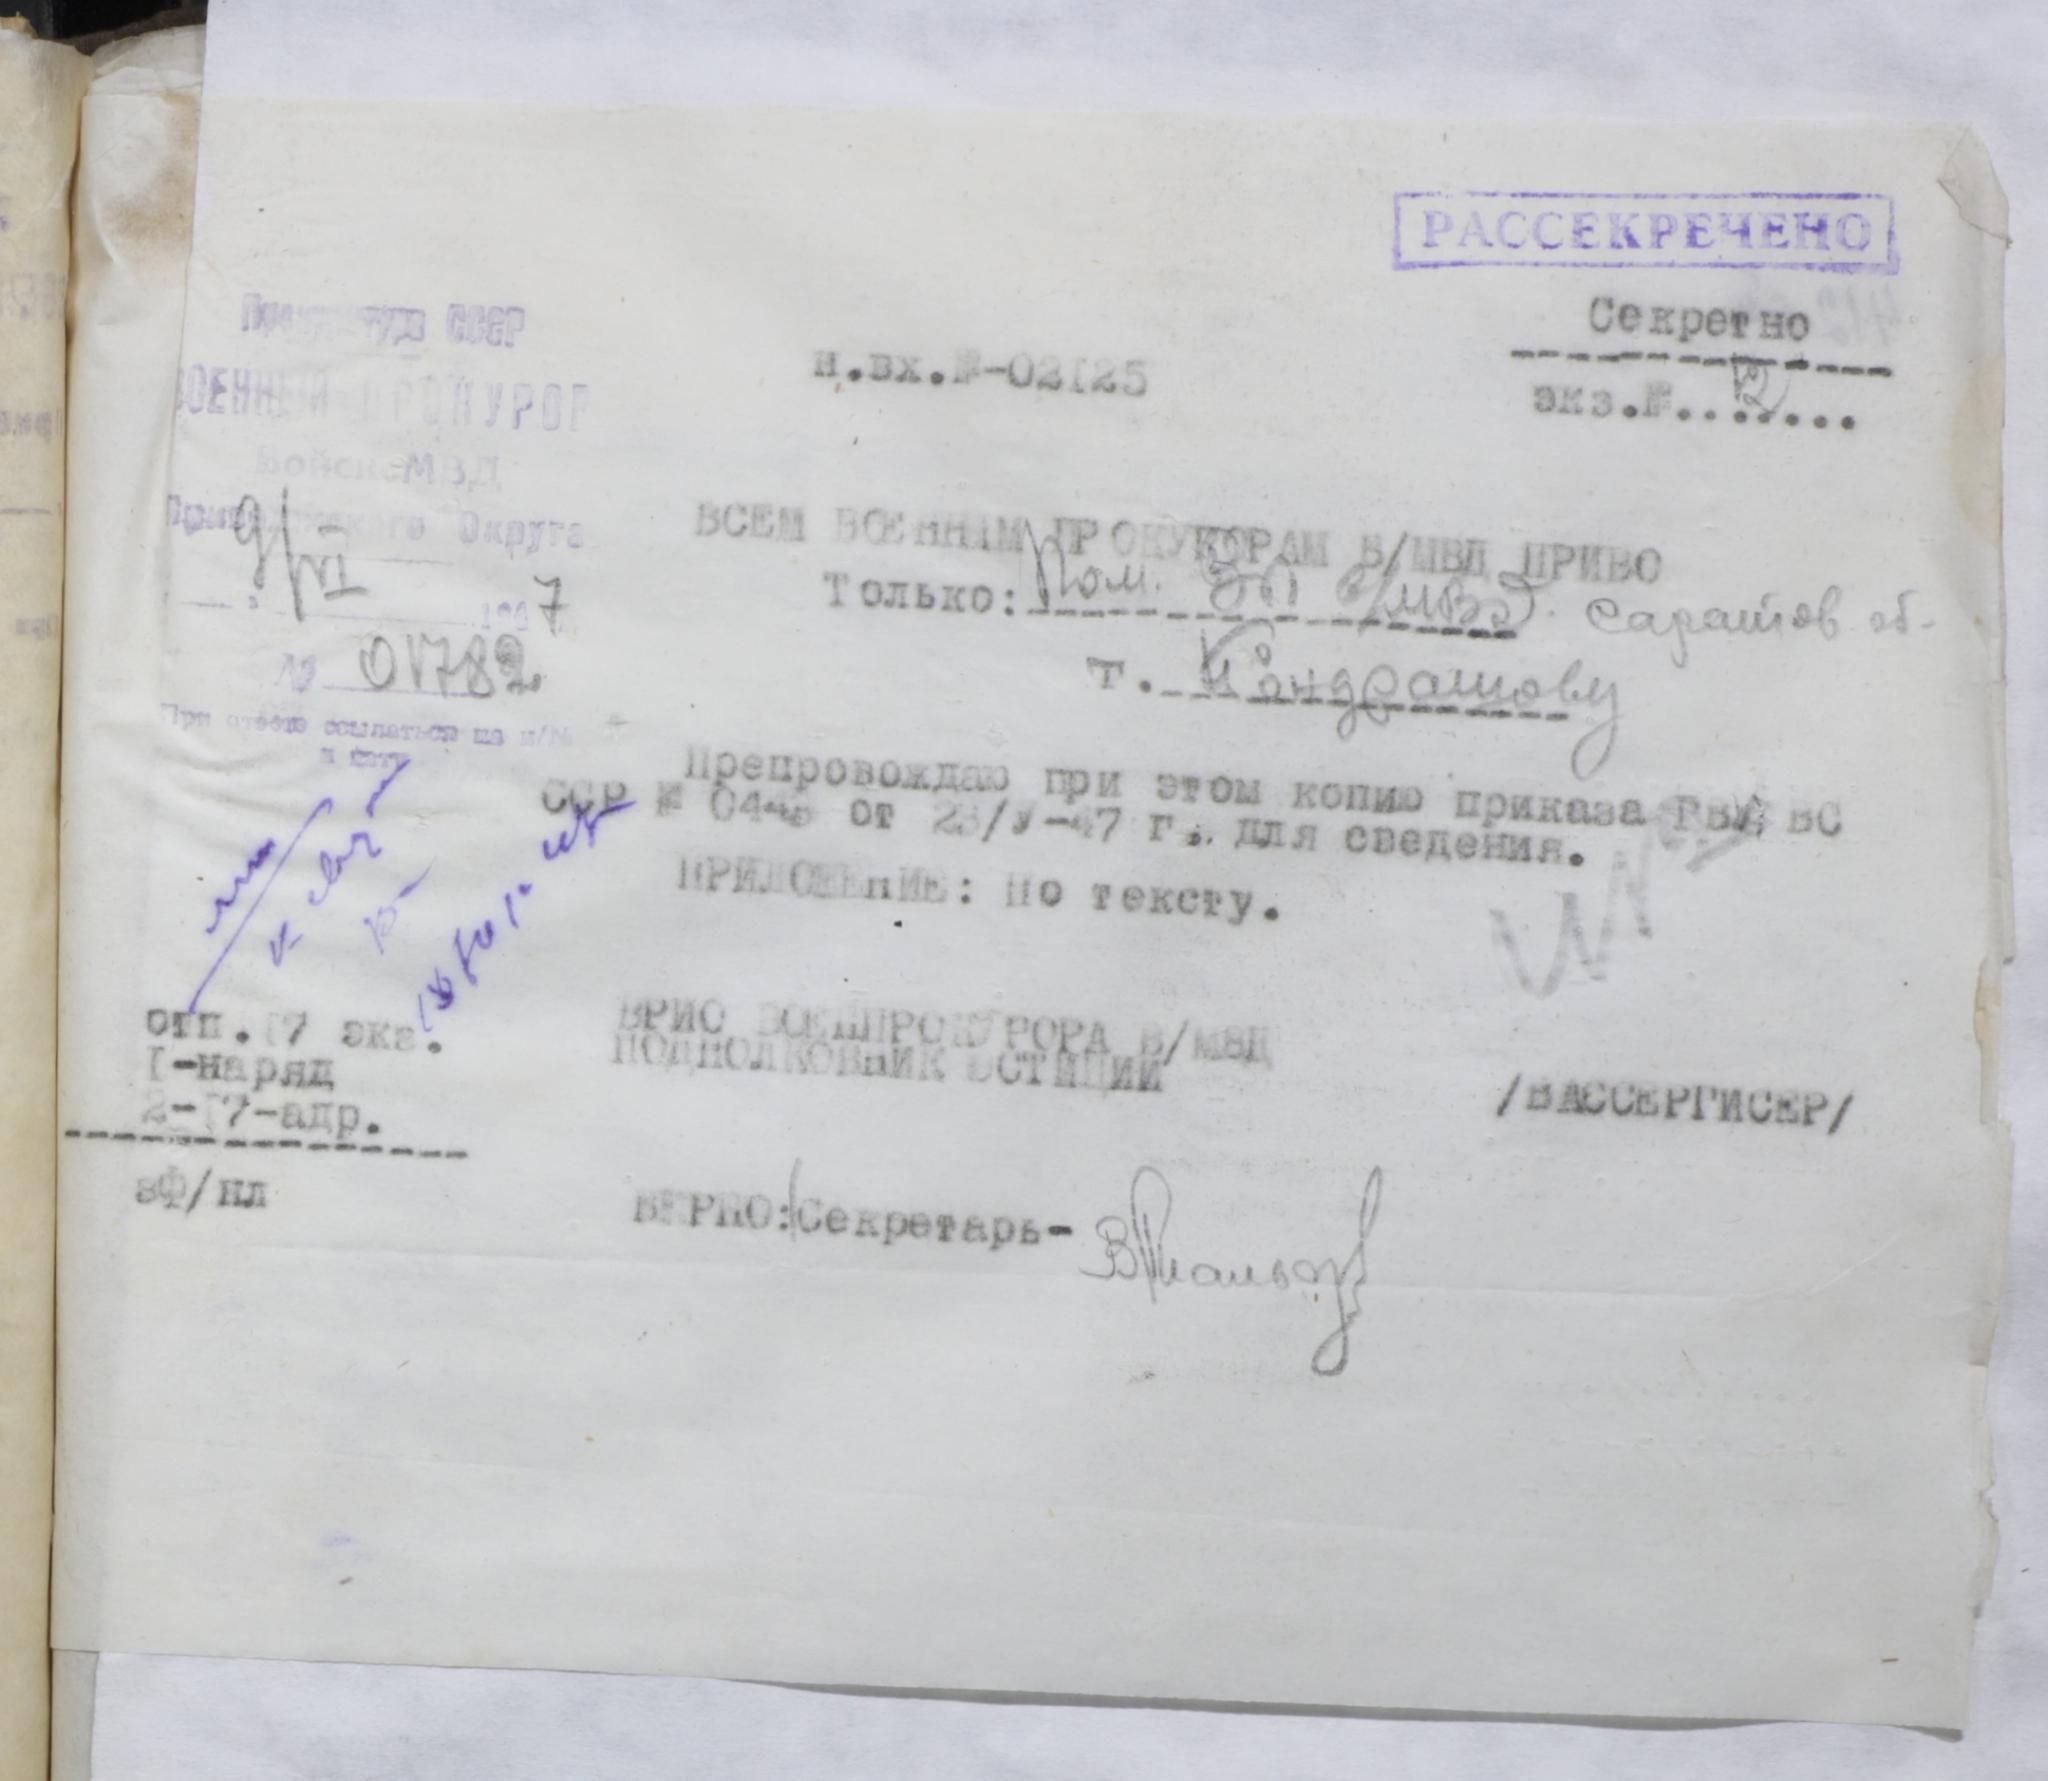 РАССЕКРЕЧЕНО
Секретно
экз.№........
н.вх.№-02I25
Прокуратура СССР
ВОЕННЫЙ ПРОКУРОР
Войск МВД
Приволжского Округа
9/VI
194 7
№ 01782
При ответе ссылаться на н/№
и дату
ВСЕМ ВОЕННЫМ ПРОКУРОРАМ В/МВД ПРИВО
Только: Пом. ВП в/МВД. Саратов. об-
т. Кондрашову
Препровождаю при этом копию приказа ГВП ВС
ССР № 0445 от 23/У-47 г., для сведения.
ПРИЛОЖЕНИЕ: По тексту.
отп.I7 экз.
I-наряд
2-I7-адр.
зФ/нл
ВРИО ВОЕНПРОКУРОРА В/МВД
ПОДПОЛКОВНИК ЮСТИЦИИ
/ВАССЕРГИСЕР/
ВЕРНО: Секретарь-